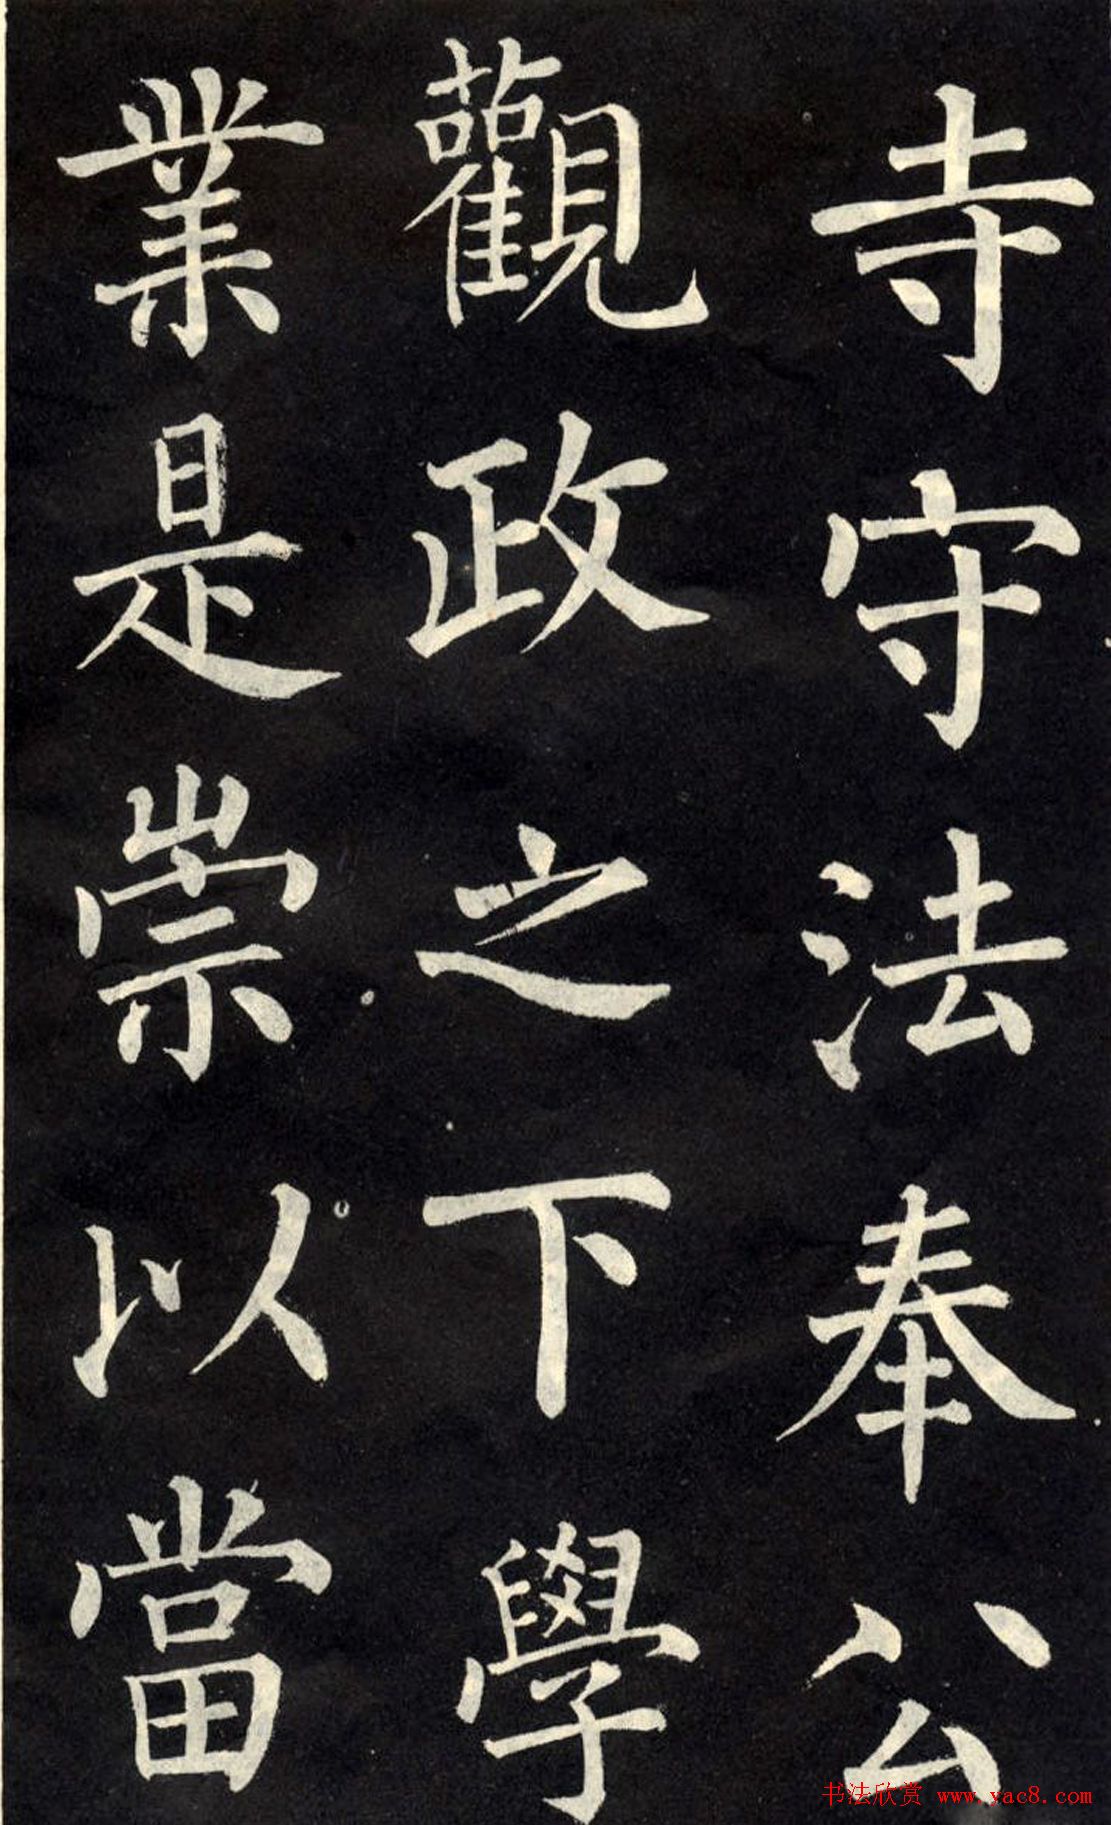 寺守法奉公
觀政之下學
業是崇以當
书法欣赏 www.yac8.com